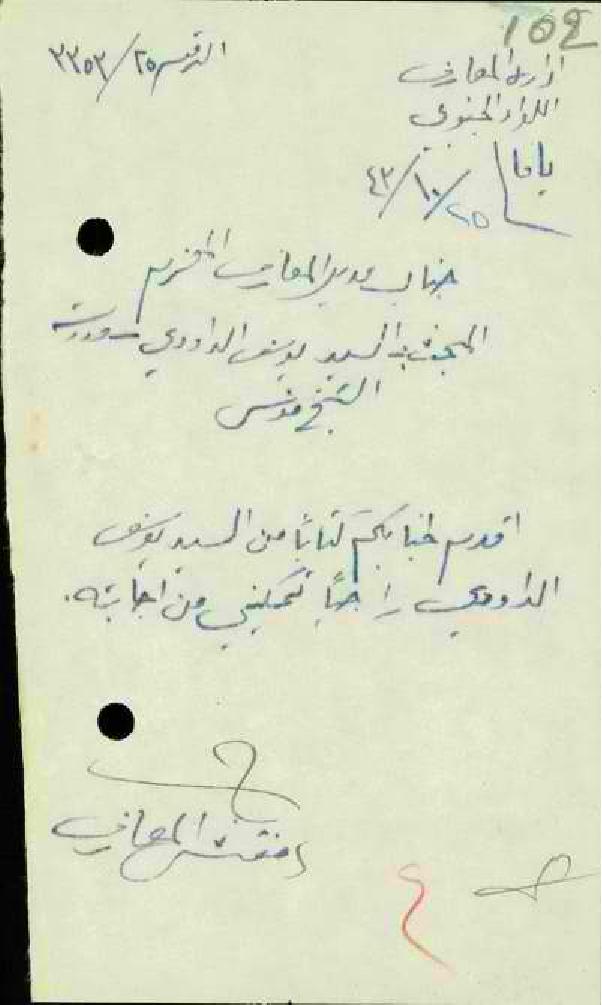 102
ادارة المعارف
الرقم ٢٥/٢٢٥٣
اللواء الجنوبي
يافا
٤٣/١٠/٢٥
جناب مدير المعارف المحترم
المبحث: السيد يوسف الداودي – مدرسة
الشيخ مونس
اقدم لجنابكم كتابًا من السيد يوسف
الداودي راجيًا تمكيني من اجابته.
مفتش المعارف